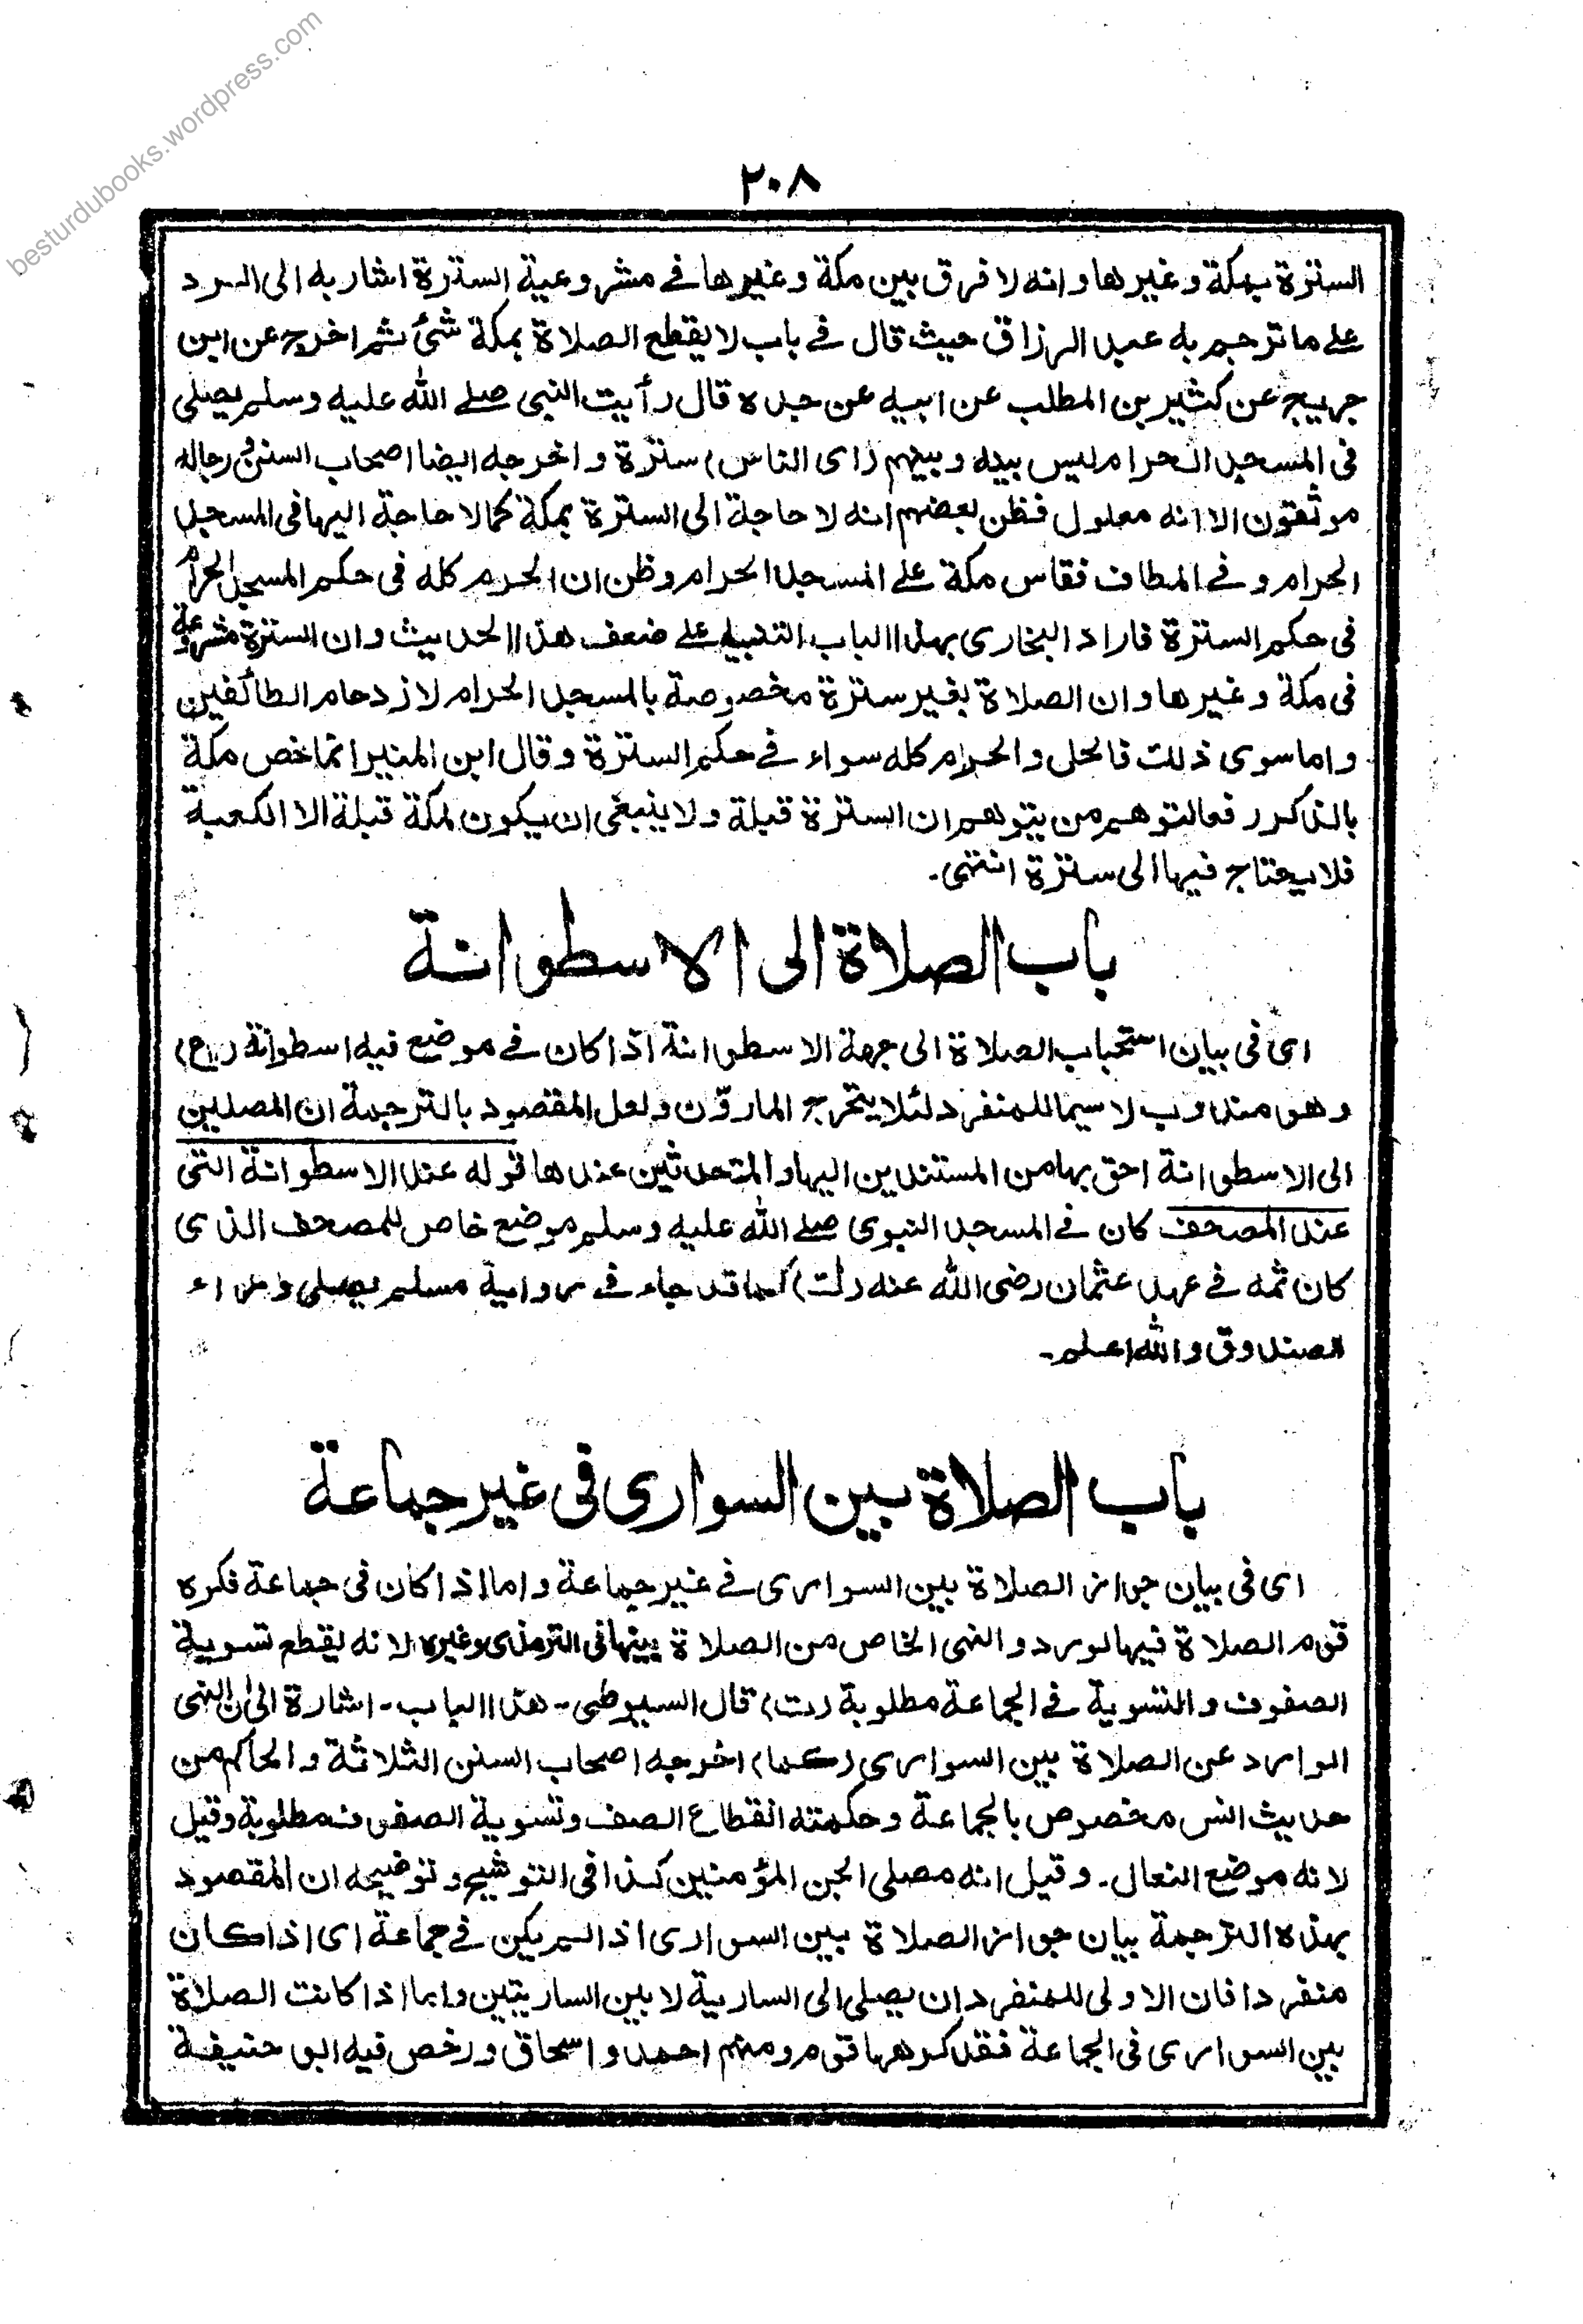 besturdubooks.wordpress.com
٢٠٨
السترة بمكة وغيرها وانه لا فرق بين مكة وغيرها في مشروعية السترة اشار به الى الرد
على ما ترجم به عبد الرزاق حيث قال في باب لا يقطع الصلاة بمكة شئ ثم اخرج عن ابن
جريج عن كثير بن المطلب عن ابيه عن جده قال رأيت النبي صلى الله عليه وسلم يصلي
في المسجد الحرام ليس بينه وبينهم (اى الناس) سترة واخرجه ايضا اصحاب السنن ورجاله
موثقون الا انه معلول فظن بعضهم انه لا حاجة الى السترة بمكة كما لا حاجة اليها في المسجد
الحرام وفي المطاف فقاس مكة على المسجد الحرام وظن ان الحرم كله في حكم المسجد الحرام
في حكم السترة فاراد البخارى بهذا الباب التنبيه على ضعف هذا الحديث وان السترة مشروعة
في مكة وغيرها وان الصلاة بغير سترة مخصوصة بالمسجد الحرام لازدحام الطائفين
واما سوى ذلك فالحل والحرام كله سواء في حكم السترة وقال ابن المنير انما خص مكة
بالذكر رفعا لتوهم من يتوهم ان السترة قبلة ولا ينبغى ان يكون لمكة قبلة الا الكعبة
فلا يحتاج فيها الى سترة انتهى۔
باب الصلاة الى الاسطوانة
اى في بيان استحباب الصلاة الى جهة الاسطوانة اذا كان في موضع فيه اسطوانة
وهو مندوب لا سيما للمنفرد لئلا يتحرج المارّون ولعل المقصود بالترجمة ان المصلين
الى الاسطوانة احق بها من المستندين اليها والمتحدثين عندها قوله عند الاسطوانة التى
عند المصحف كان في المسجد النبوى صلى الله عليه وسلم موضع خاص للمصحف الذى
كان ثمه في عهد عثمان رضى الله عنه (ت) كما قد جاء في رواية مسلم يصلى وراء
الصندوق والله اعلم۔
باب الصلاة بين السوارى فى غير جماعة
اى في بيان جواز الصلاة بين السوارى في غير جماعة واما اذا كان في جماعة فكره
قوم الصلاة فيها لورود النهى الخاص من الصلاة بينها فى الترمذى وغيره لانه يقطع تسوية
الصفوف والتسوية في الجماعة مطلوبة (ت) قال السيوطى۔ هذا الباب۔ اشارة الى ان النهى
الوارد عن الصلاة بين السوارى (كما) اخرجه اصحاب السنن الثلاثة والحاكم من
حديث انس مخصوص بالجماعة وحكمته انقطاع الصف وتسوية الصفوف مطلوبة وقيل
لانه موضع النعال۔ وقيل انه مصلى الجن المؤمنين كذا فى التوشيح وتوضيحه ان المقصود
بهذه الترجمة بيان جواز الصلاة بين السوارى اذا لم يكن في جماعة اى اذا كان
منفردا فان الاولى للمنفرد ان يصلى الى السارية لا بين الساريتين واما اذا كانت الصلاة
بين السوارى فى الجماعة فقد كرهها قوم ومنهم احمد واسحاق ورخص فيه ابو حنيفة